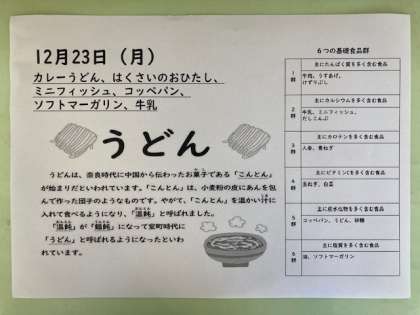 12月23日（月）
カレーうどん、はくさいのおひたし、
ミニフィッシュ、コッペパン、
ソフトマーガリン、牛乳
うどん
うどんは、奈良時代に中国から伝わったお菓子である「こんとん」
が始まりだといわれています。「こんとん」は、小麦粉の皮にあんを包
んで作った団子のようなものです。やがて、「こんとん」を温かい汁に
入れて食べるようになり、「温飩」と呼ばれました。
「温飩」が「饂飩」になって室町時代に
「うどん」と呼ばれるようになったといわ
れています。
６つの基礎食品群
主にたんぱく質を多く含む食品
1群
牛肉、うすあげ、
けずりぶし
主にカルシウムを多く含む食品
2群
牛乳、ミニフィッシュ、
だしこんぶ
主にカロテンを多く含む食品
3群
人参、青ねぎ
主にビタミンCを多く含む食品
4群
玉ねぎ、白菜
主に炭水化物を多く含む食品
5群
コッペパン、うどん、砂糖
主に脂質を多く含む食品
6群
油、ソフトマーガリン